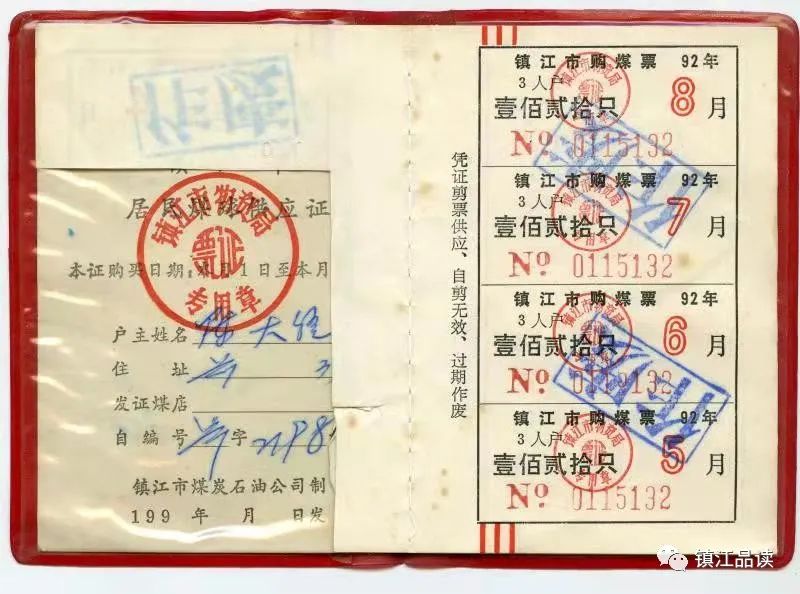 作废
镇江市物资局
票证
专用章
居民煤球供应证
本证购买日期:本月1日至本月
户主姓名 陈大
住 址
发证煤店
自编号 字
镇江市煤炭石油公司制
199 年 月 日发
凭证剪票供应、自剪无效、过期作废
镇江市购煤票 92年
3人户
壹佰贰拾只 8月
No 0115132
镇江市购煤票 92年
3人户
壹佰贰拾只 7月
No 0115132
镇江市购煤票 92年
3人户
壹佰贰拾只 6月
No 0115132
镇江市购煤票 92年
3人户
壹佰贰拾只 5月
No 0115132
镇江品读